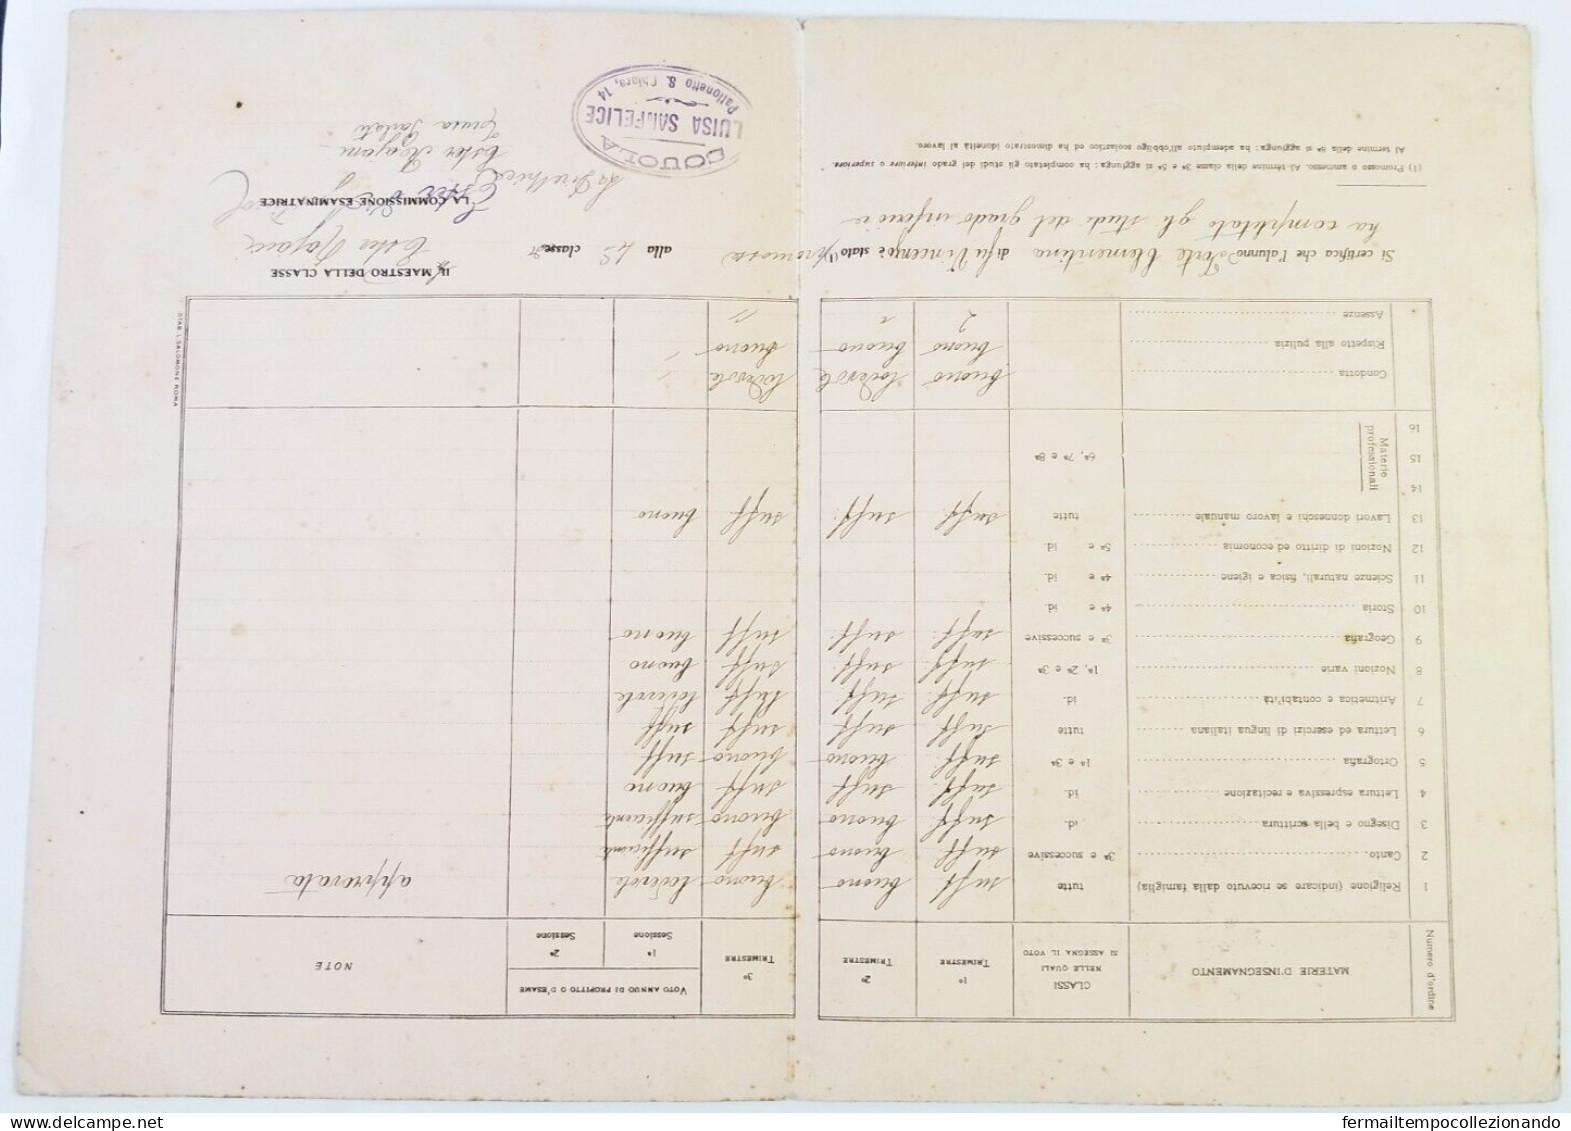 Numero d'ordine | MATERIE D'INSEGNAMENTO | CLASSI NELLE QUALI SI ASSEGNA IL VOTO | 1º TRIMESTRE | 2º TRIMESTRE | 3º TRIMESTRE | VOTO ANNUO DI PROFITTO O D'ESAME 1ª Sessione | 2ª Sessione | NOTE
1 Religione (indicare se ricevuto dalla famiglia) tutte suff buono buono lodevole approvata
2 Canto. 3ª e successive suff buono suff sufficiente
3 Disegno e bella scrittura id. suff buono buono sufficiente
4 Lettura espressiva e recitazione id. suff suff suff buono
5 Ortografia 1ª e 3ª suff buono buono suff
6 Lettura ed esercizi di lingua italiana tutte suff suff suff suff
7 Aritmetica e contabilità id. suff. suff. suff lodevole
8 Nozioni varie 1ª, 2ª e 3ª suff. suff. suff buono
9 Geografia 3ª e successive suff. suff. suff buono
10 Storia 4ª e id.
11 Scienze naturali, fisica e igiene 4ª e id.
12 Nozioni di diritto ed economia 5ª e id.
13 Lavori donneschi e lavoro manuale tutte suff. suff. suff buono
14
15 Materie professionali 6ª, 7ª e 8ª
16
Condotta buono lodevole lodevole
Rispetto alla pulizia buono buono buono
Assenze 2
Si certifica che l'alunno Forte Clementina di fu Vincenzo è stato (1) promossa alla 4ª classe.
ha completato gli studi del grado inferiore
(1) Promosso o ammesso. Al termine della classe 3ª e 5ª si aggiunga: ha completato gli studi del grado inferiore o superiore.
Al termine della 8ª si aggiunga: ha adempiuto all'obbligo scolastico ed ha dimostrato idoneità al lavoro.
IL MAESTRO DELLA CLASSE
Ester
LA COMMISSIONE ESAMINATRICE
La Direttrice
Ester
Luisa
SCUOLA
LUISA SANFELICE
Pallonetto S. Chiara, 14
STAB. L. SALOMONE ROMA
fermailtempocollezionando